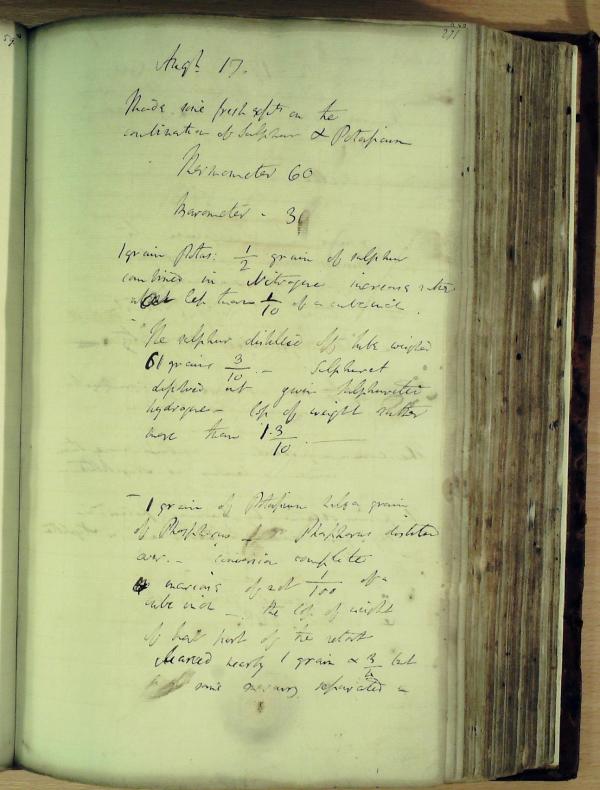 271
Augt. 17.
Made some fresh expts on the
combination of Sulphur & Potassium
Thermometer 60
Barometer - 30
1 grain Potas: 1/2 grain of sulphur
combined in Nitrogene increase rather
less than 1/10 of a cubic inch.
The sulphur distilled off tube weighed
61 grains 3/10. - Sulphuret
dissolved gave sulphuretted
hydrogene - loss of weight rather
more than 1.3/10
1 grain of Potassium half a grain
of Phosphorus Phosphorus distilled
over. - conversion complete
increase of not 1/100 of a
cube inch - the loss of weight
of part of the retort
nearly 1 grain & 3/ but
some mercury separated